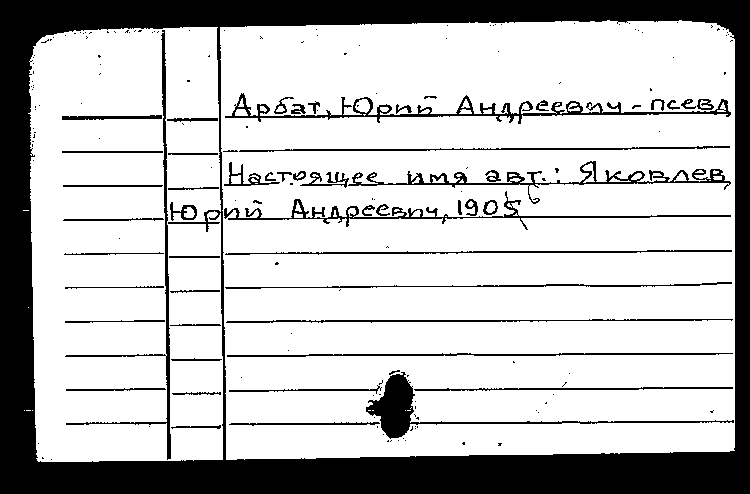 Арбат, Юрий Андреевич - псевд
Настоящее имя авт.: Яковлев,
Юрий Андреевич, 1905 6